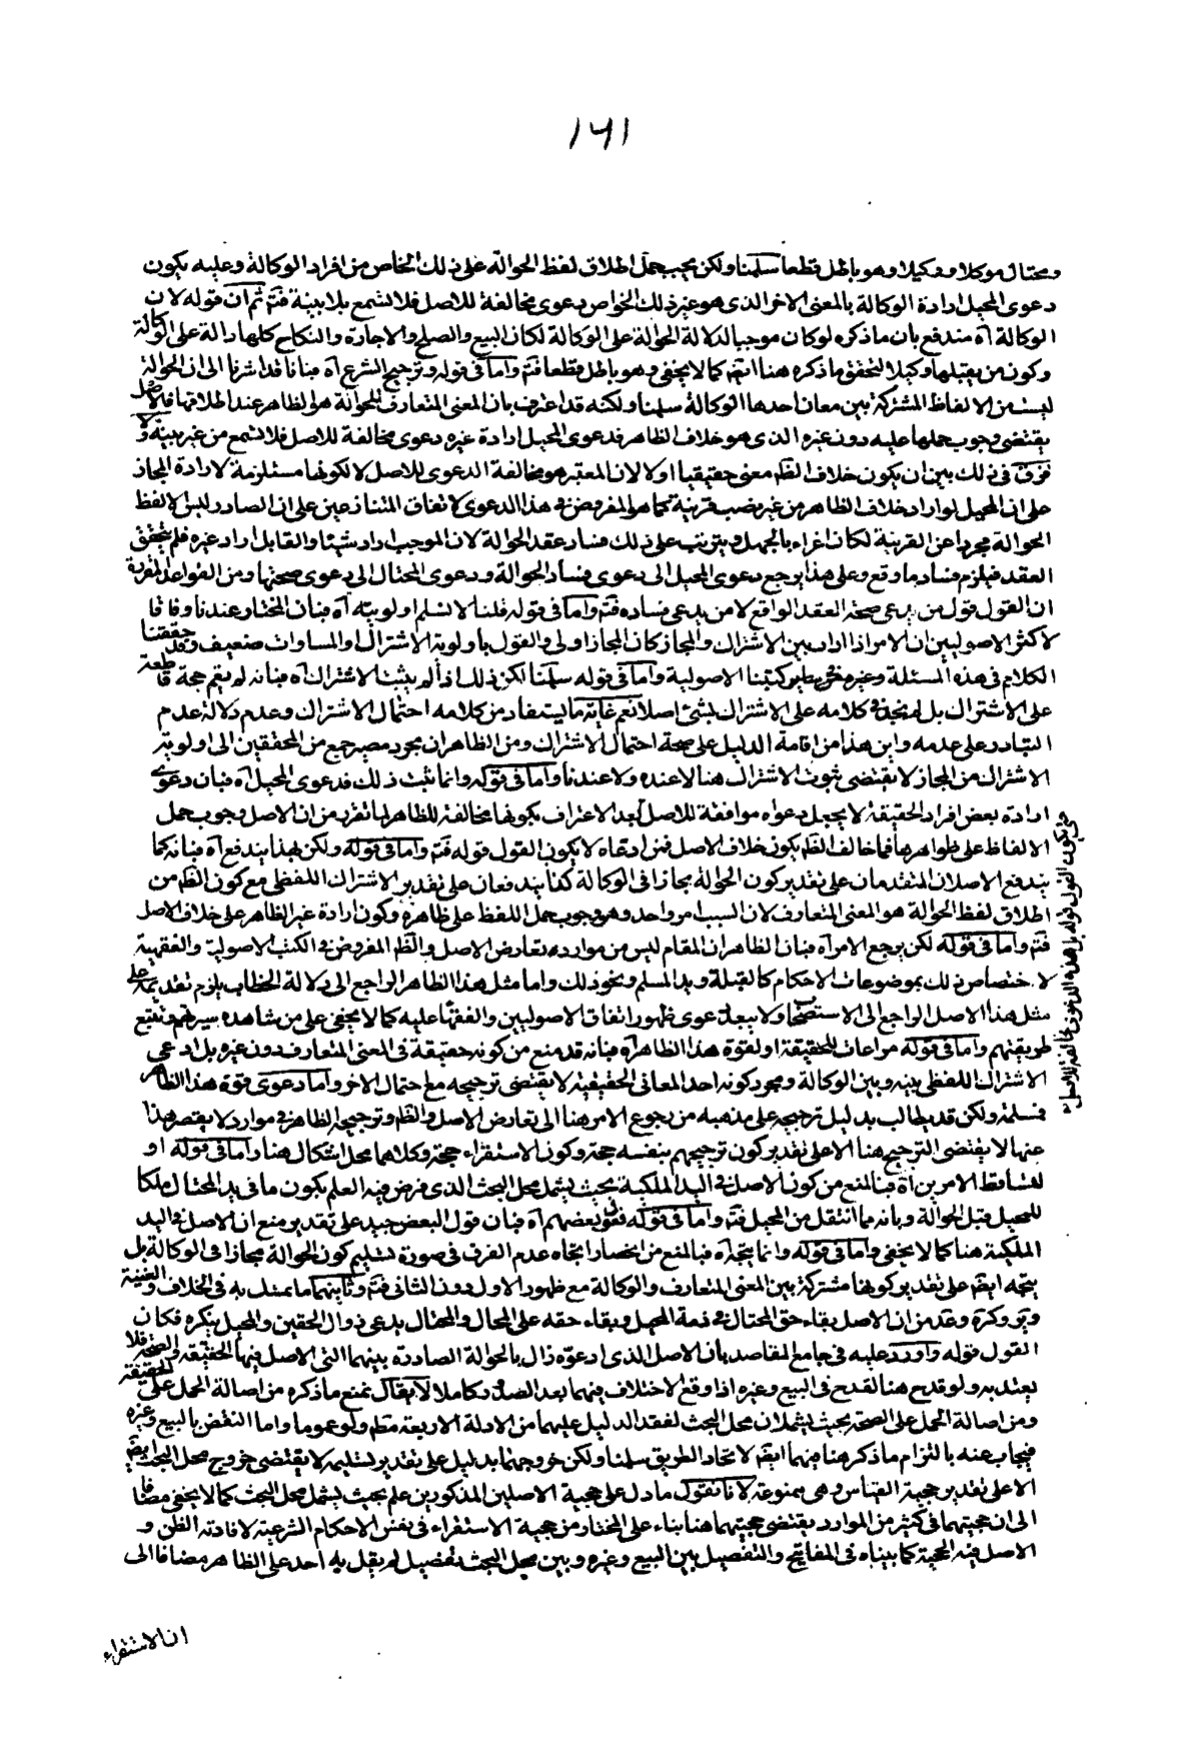 ١٦١
ومحتال موكلا ووكيلا وهو باطل قطعا سلمنا ولكن يجب حمل اطلاق لفظ الحوالة على ذلك الخاص من افراد الوكالة وعليه يكون
دعوى المحيل ارادة الوكالة بالمعنى الاخر الذى هو غير ذلك الخواص دعوى مخالفة للاصل فلا تسمع بلا بينة فتم ثم ان قوله لان
الوكالة آه مندفع بان ما ذكره لو كان موجبا لدلالة الحوالة على الوكالة لكان البيع والصلح والاجارة والنكاح كلها دالة على الوكالة
وكون من يقبلها وكيلا لتحقق ما ذكره هنا ايضا كما لا يخفى وهو باطل قطعا فتم واما فى قوله وترجيح الشرع آه فبانا قد اشرنا الى ان الحوالة
ليست من الالفاظ المشتركة بين معان احدها الوكالة سلمنا ولكنه قد اعترف بان المعنى المتعارف للحوالة هو الظاهر عند اطلاقها فالاصل
يقتضى وجوب حملها عليه دون غيره الذى هو خلاف الظاهر فدعوى المحيل ارادة غيره دعوى مخالفة للاصل فلا تسمع من غير بينة ولا
فرق فى ذلك بين ان يكون خلاف الظم معنى حقيقيا او لا لان المعتبر هو مخالفة الدعوى للاصل لا لكونها مستلزمة لارادة المجاز
على ان المحيل لو اراد خلاف الظاهر من غير نصب قرينة كما هو المفروض فى هذا الدعوى لاتفاق المتنازعين على ان الصادر ليس الا لفظ
الحوالة مجردا عن القرينة لكان اغراء بالجهل ويترتب على ذلك فساد عقد الحوالة لان الموجب اراد شيئا والقابل اراد غيره فلم يتحقق
العقد فيلزم فساد ما وقع وعلى هذا يرجع دعوى المحيل الى دعوى فساد الحوالة ودعوى المحتال الى دعوى صحتها ومن القواعد المقررة
ان القول قول من يدعى صحة العقد الواقع لا من يدعى فساده فتم واما فى قوله قلنا لا نسلم اولويته آه فبان المختار عندنا وفاقا
لاكثر الاصوليين ان الامر اذا دار بين الاشتراك والمجاز كان المجاز اولى والقول باولوية الاشتراك او المساوات ضعيف وقد حققنا
الكلام فى هذه المسئلة وغيره فى كتبنا الاصولية واما فى قوله سلمنا لكن ذلك اذا لم يثبت الاشتراك آه فبانه لم يقم حجة قاطعة
على الاشتراك بل لم نجد فى كلامه على الاشتراك بشئ اصلا نعم غاية ما يستفاد من كلامه احتمال الاشتراك وعدم دلالة عدم
التبادر على عدمه واين هذا من اقامة الدليل على صحة احتمال الاشتراك ومن الظاهر ان مجرد مصير جمع من المحققين الى اولوية
الاشتراك من المجاز لا يقتضى ثبوت الاشتراك هنا لا عنده ولا عندنا واما فى قوله وانما ثبت ذلك فدعوى المحيل آه فبان دعوى
ارادة بعض افراد الحقيقة لا يجعل دعواه موافقة للاصل بعد الاعتراف بكونها مخالفة للظاهر لما تقرر من ان الاصل وجوب حمل
الالفاظ على ظواهرها فما خالف الظم يكون خلاف الاصل فمن ادعاه لا يكون القول قوله فتم واما فى قوله ولكن بهذا يندفع آه فبانه كما
يندفع الاصلان المتقدمان على تقدير كون الحوالة مجازا فى الوكالة كذا يندفعان على تقدير الاشتراك اللفظى مع كون الظم من
اطلاق لفظ الحوالة هو المعنى المتعارف لان السبب امر واحد وهو وجوب حمل اللفظ على ظاهره وكون ارادة غير الظاهر على خلاف الاصل
فتم واما فى قوله لكن يرجع الامر آه فبان الظاهر ان المقام ليس من موارد تعارض الاصل والظم المفروض فى الكتب الاصولية والفقهية
لاختصاص ذلك بموضوعات الاحكام كالقبلة ويد المسلم ونحو ذلك واما مثل هذا الظاهر الراجع الى دلالة الخطاب يلزم تقديمه على
مثل هذا الاصل الراجع الى الاستصحاب ولا يبعد دعوى ظهور اتفاق الاصوليين والفقهاء عليه كما لا يخفى على من شاهد سيرتهم وتتبع
طريقتهم واما فى قوله مراعات للحقيقة او لقوة هذا الظاهر آه فبانه قد منع من كونه حقيقة فى المعنى المتعارف دون غيره بل ادعى
الاشتراك اللفظى بينه وبين الوكالة ومجرد كونه احد المعانى الحقيقية لا يقتضى ترجيحه مع احتمال الاخر واما دعوى قوة هذا الظاهر
فمسلمة ولكن قد يطالب بدليل ترجيحه على مذهبه من رجوع الامر هنا الى تعارض الاصل والظم وترجيح الظاهر فى موارد لا يقصر هذا
عنها لا يقتضى الترجيح هنا الا على تقدير كون ترجيحهم بنفسه حجة وكون الاستقراء حجة وكلاهما محل اشكال هنا واما فى قوله او
لتساقط الامرين آه فبالمنع من كون الاصل فى اليد الملكية بحيث يشمل محل البحث الذى فرض فيه العلم بكون ما فى يد المحتال ملكا
للمحيل قبل الحوالة وبانه مما انتقل من المحيل فتم واما فى قوله فقول بعضهم آه فبان قول البعض جيد على تقدير منع ان الاصل فى اليد
الملكية هنا كما لا يخفى واما فى قوله وانما يتجه آه فبالمنع من انحصار اتجاه عدم الفرق فى صورة تسليم كون الحوالة مجازا فى الوكالة بل
يتجه ايضم على تقدير كونها مشتركة بين المعنى المتعارف والوكالة مع ظهور الاول دون الثانى فتم وثانيهما ما تمسك به فى الخلاف والغنية
وير وكرة وعد من ان الاصل بقاء حق المحتال فى ذمة المحيل وبقاء حقه على المحال والمحتال يدعى زوال الحقين والمحيل ينكره فكان
القول قوله واورد عليه فى جامع المقاصد بان الاصل الذى ادعوه زال بالحوالة الصادرة بينهما التى الاصل فيها الحقيقة والصحة فلا
يعتد به ولو قدح هنا لقدح فى البيع وغيره اذا وقع الاختلاف فيهما بعد الصدور كاملا لا يقال نمنع ما ذكره من اصالة الحمل على الحقيقة
ومن اصالة الحمل على الصحة بحيث يشملان محل البحث لفقد الدليل عليهما من الادلة الاربعة مطم ولو عموما واما النقض بالبيع وغيره
فيجاب عنه بالتزام ما ذكر هنا فيهما ايضم لاتحاد الطريق سلمنا ولكن خروجهما بدليل على تقدير تسليمه لا يقتضى خروج محل البحث ايضم
الا على تقدير حجية القياس وهى ممنوعة لانا نقول ما دل على حجية الاصلين المذكورين علم بحيث يشمل محل البحث كما لا يخفى مضافا
الى ان حجيتهما فى كثير من الموارد يقتضى حجيتهما هنا بناء على المختار من حجية الاستقراء فى نفس الاحكام الشرعية لافادته الظن و
الاصل فيه الحجية كما بيناه فى المفاتيح والتفصيل بين البيع وغيره وبين محل البحث تفصيل لم يقل به احد على الظاهر مضافا الى
حتى يكون القول قوله بل هذه الدعوى مخالفة للاصل
ان الاستقراء